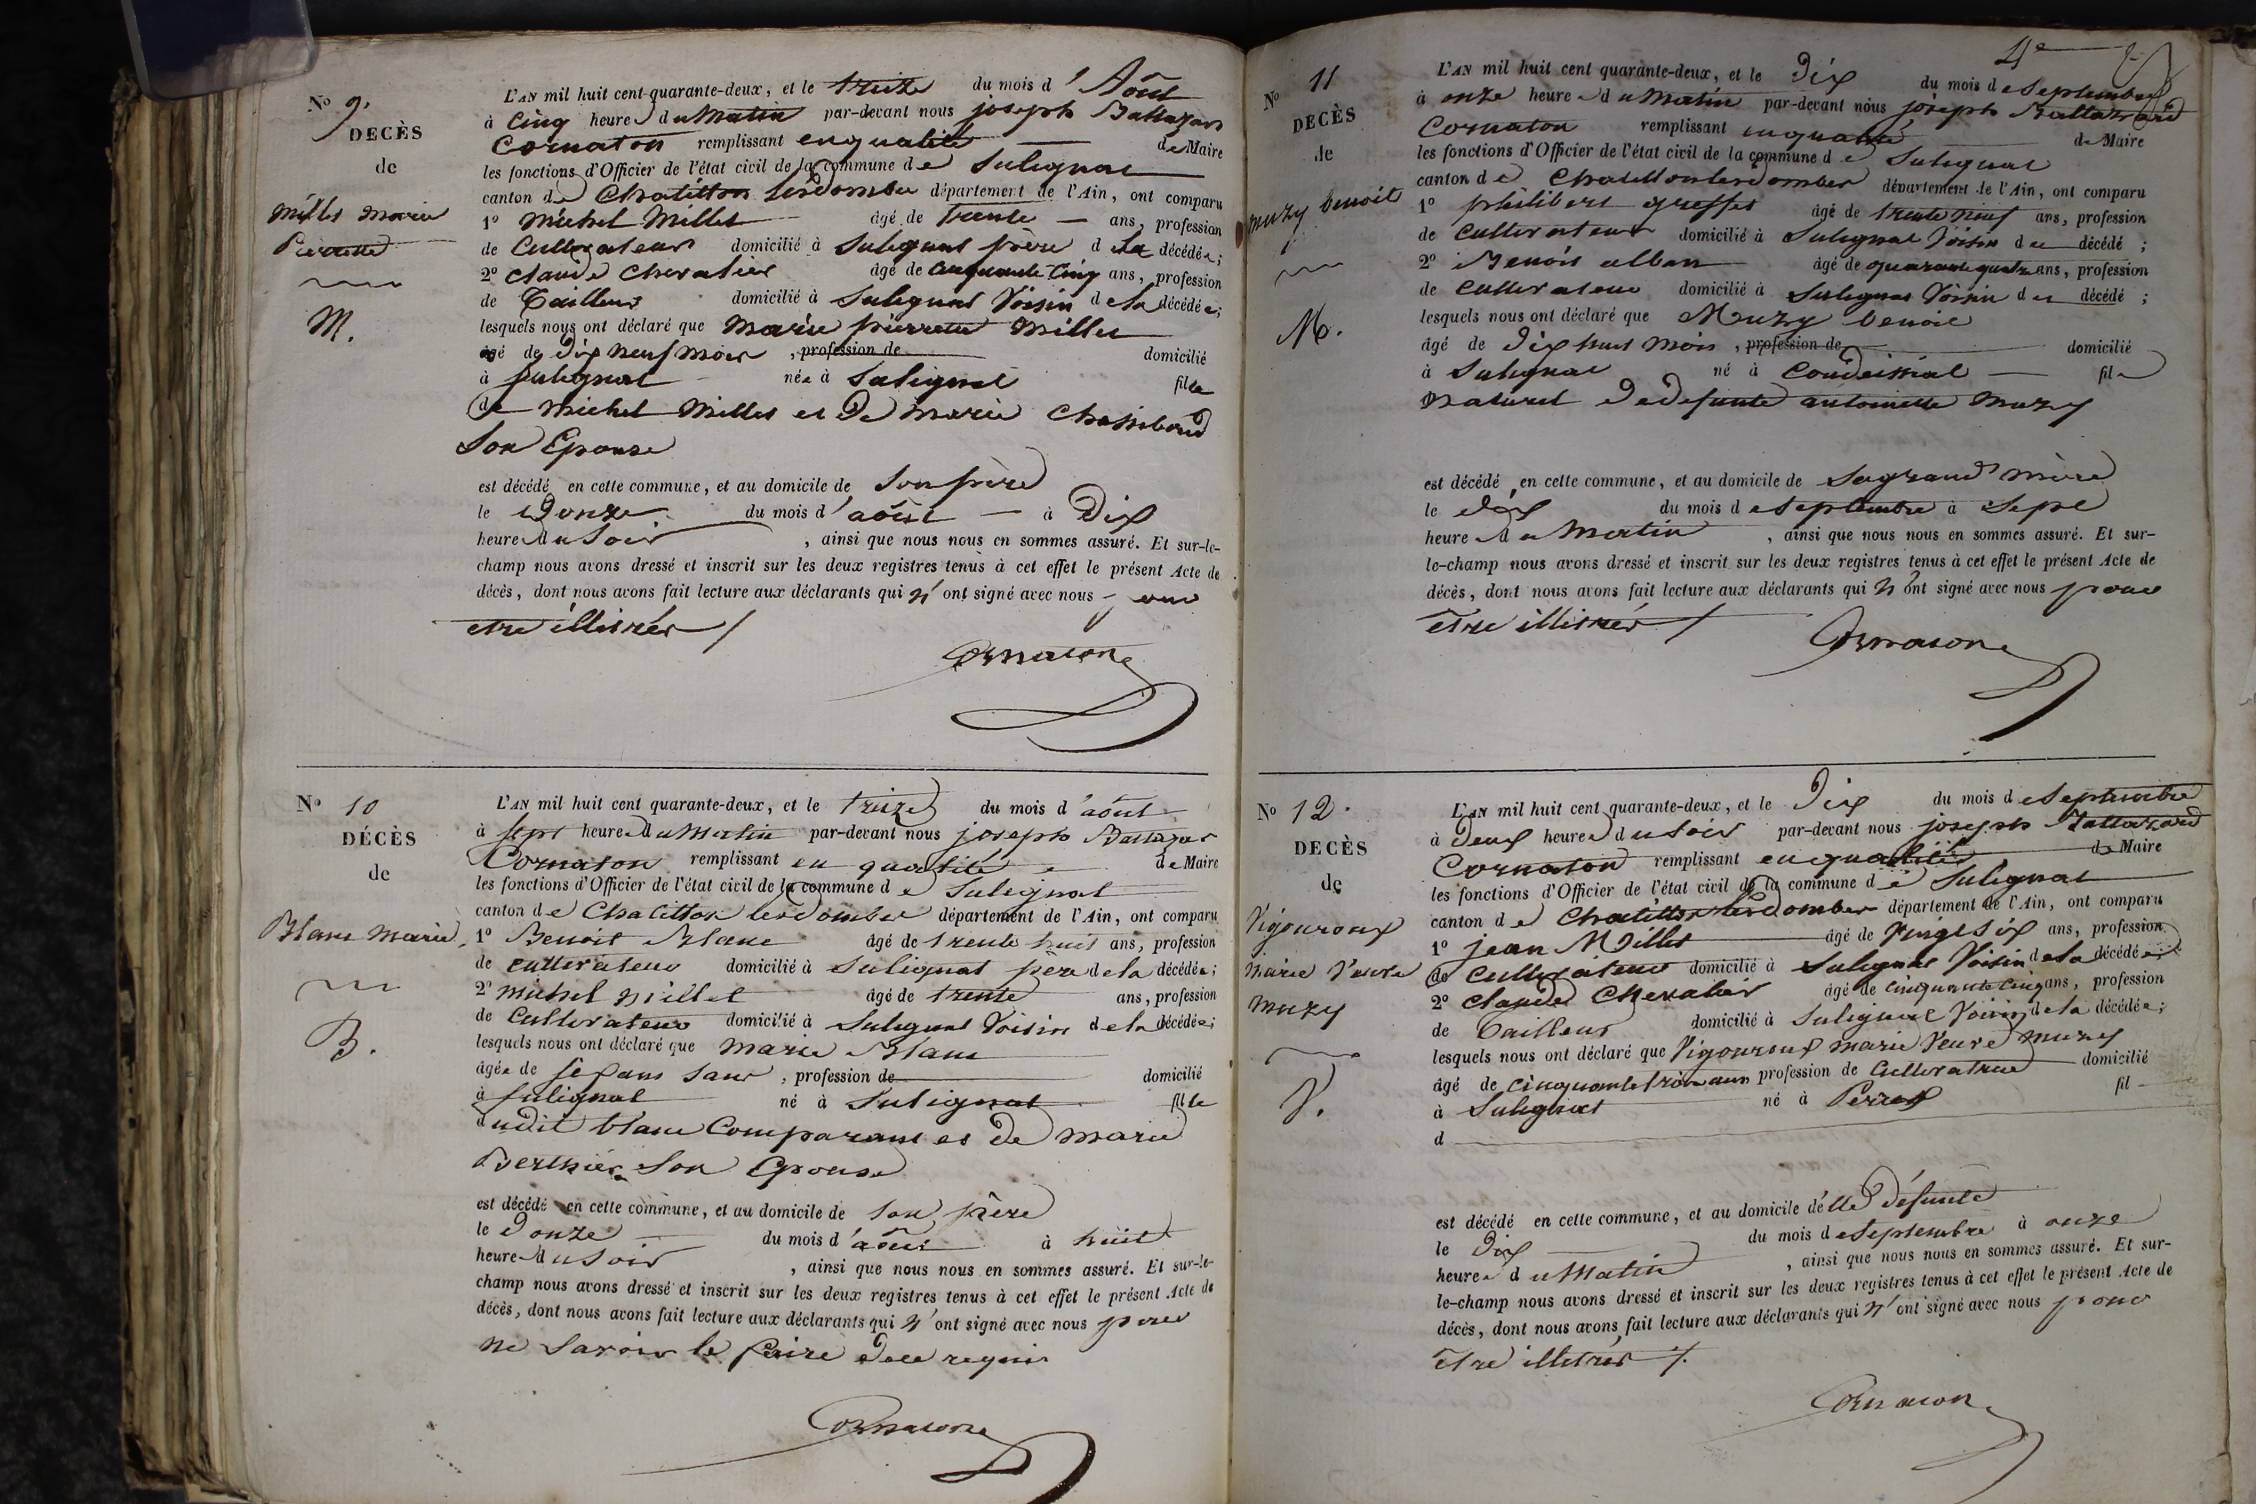 N.o 9.
DECÈS
de
Millet Marie
Pierrette
M.
L'AN mil huit cent quarante-deux, et le treize du mois d'Aôut
à cinq heure du Matin par-devant nous joseph Baltazard
Cornaton remplissant en qualité de Maire
les fonctions d'Officier de l'état civil de la commune de Sulignat
canton de Chatillon lesdombes département de l'Ain, ont comparu
1o Michel Millet âgé de trente ans, profession
de Cultivateur domicilié à Sulignat père de la décédée;
2o Claude Chevalier âgé de cinquante cinq ans, profession
de Tailleur domicilié à Sulignat Voisin de la décédée;
lesquels nous ont déclaré que Marie pierrette Millet
âgé de dix neuf mois, profession de domicilié
à Sulignat née à Sulignat fille
de Michel Millet et de Marie
Son Epouse
est décédé en cette commune, et au domicile de Son père
le Douze du mois d'aôut à Dix
heure du Soir, ainsi que nous nous en sommes assuré. Et sur-le-
champ nous avons dressé et inscrit sur les deux registres tenus à cet effet le présent Acte de
décès, dont nous avons fait lecture aux déclarants qui n'ont signé avec nous pour
etre illitrés /
Cornaton
N.o 10
DÉCÈS
de
Blanc Marie
B.
L'AN mil huit cent quarante-deux, et le treize du mois d'aôut
à sept heure du Matin par-devant nous joseph Baltazar
Cornaton remplissant en qualité de Maire
les fonctions d'Officier de l'état civil de la commune de Sulignat
canton de Chatillon lesdombes département de l'Ain, ont comparu
1o Benoit Blanc âgé de trente huit ans, profession
de cultivateur domicilié à Sulignat père de la décédée;
2o Michel Millet âgé de trente ans, profession
de Cultivateur domicilié à Sulignat Voisin de la décédée;
lesquels nous ont déclaré que Marie Blanc
âgée de sans, profession de domicilié
à Sulignat né à Sulignat fille
dudit blanc Comparant et de Marie
Berthier Son Epouse
est décédé en cette commune, et au domicile de Son père
le Douze du mois d'aôut à huit
heure du Soir, ainsi que nous nous en sommes assuré. Et sur-le-
champ nous avons dressé et inscrit sur les deux registres tenus à cet effet le présent Acte de
décès, dont nous avons fait lecture aux déclarants qui n'ont signé avec nous pour
ne Savoir le faire requis
Cornaton
4e
N.o 11
DECÈS
de
Muzy benoit
M.
L'AN mil huit cent quarante-deux, et le Dix du mois de Septembre
à onze heure du Matin par-devant nous joseph Baltazard
Cornaton remplissant en qualité de Maire
les fonctions d'Officier de l'état civil de la commune de Sulignat
canton de Chatillon lesdombes département de l'Ain, ont comparu
1o philibert greffet âgé de trente neuf ans, profession
de cultivateur domicilié à Sulignat Voisin du décédé;
2o Benoit alban âgé de quarante quatre ans, profession
de cultivateur domicilié à Sulignat Voisin du décédé;
lesquels nous ont déclaré que Muzy benoit
âgé de dix huit mois, profession de domicilié
à Sulignat né à Condeissiat fil
naturel de defunte antoinette Muzy
est décédé en cette commune, et au domicile de Sa grand mère
le dix du mois de Septembre à Sept
heure du Matin, ainsi que nous nous en sommes assuré. Et sur-
le-champ nous avons dressé et inscrit sur les deux registres tenus à cet effet le présent Acte de
décès, dont nous avons fait lecture aux déclarants qui n'ont signé avec nous pour
etre illitrés /
Cornaton
N.o 12.
DECÈS
de
Vigouroux
Marie Veuve
Muzy
V.
L'AN mil huit cent quarante-deux, et le Dix du mois de Septembre
à Deux heure du Soir par-devant nous joseph Baltazard
Cornaton remplissant en qualité de Maire
les fonctions d'Officier de l'état civil de la commune de Sulignat
canton de Chatillon lesdombes département de l'Ain, ont comparu
1o jean Millet âgé de Vingt Six ans, profession
de cultivateur domicilié à Sulignat Voisin de la décédée;
2o Claude Chevalier âgé de cinquante cinq ans, profession
de Tailleur domicilié à Sulignat Voisin de la décédée;
lesquels nous ont déclaré que Vigouroux Marie Veuve Muzy
âgé de cinquante trois ans profession de Cultivatrice domicilié
à Sulignat né à Perrex fil
d
est décédé en cette commune, et au domicile d'elle défunte
le Dix du mois de Septembre à onze
heure du Matin, ainsi que nous nous en sommes assuré. Et sur-
le-champ nous avons dressé et inscrit sur les deux registres tenus à cet effet le présent Acte de
décès, dont nous avons fait lecture aux déclarants qui n'ont signé avec nous pour
etre illetrés /.
Cornaton